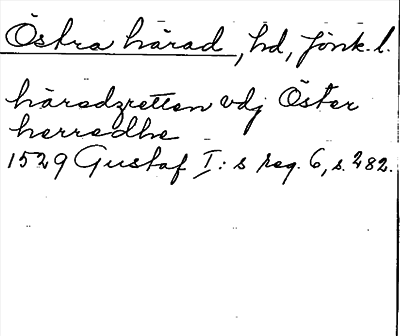 Östra härad, hd, Jönk. l.
häredzretten vdj Öster
herredhe
1529 Gustaf I:s reg. 6, s. 282.